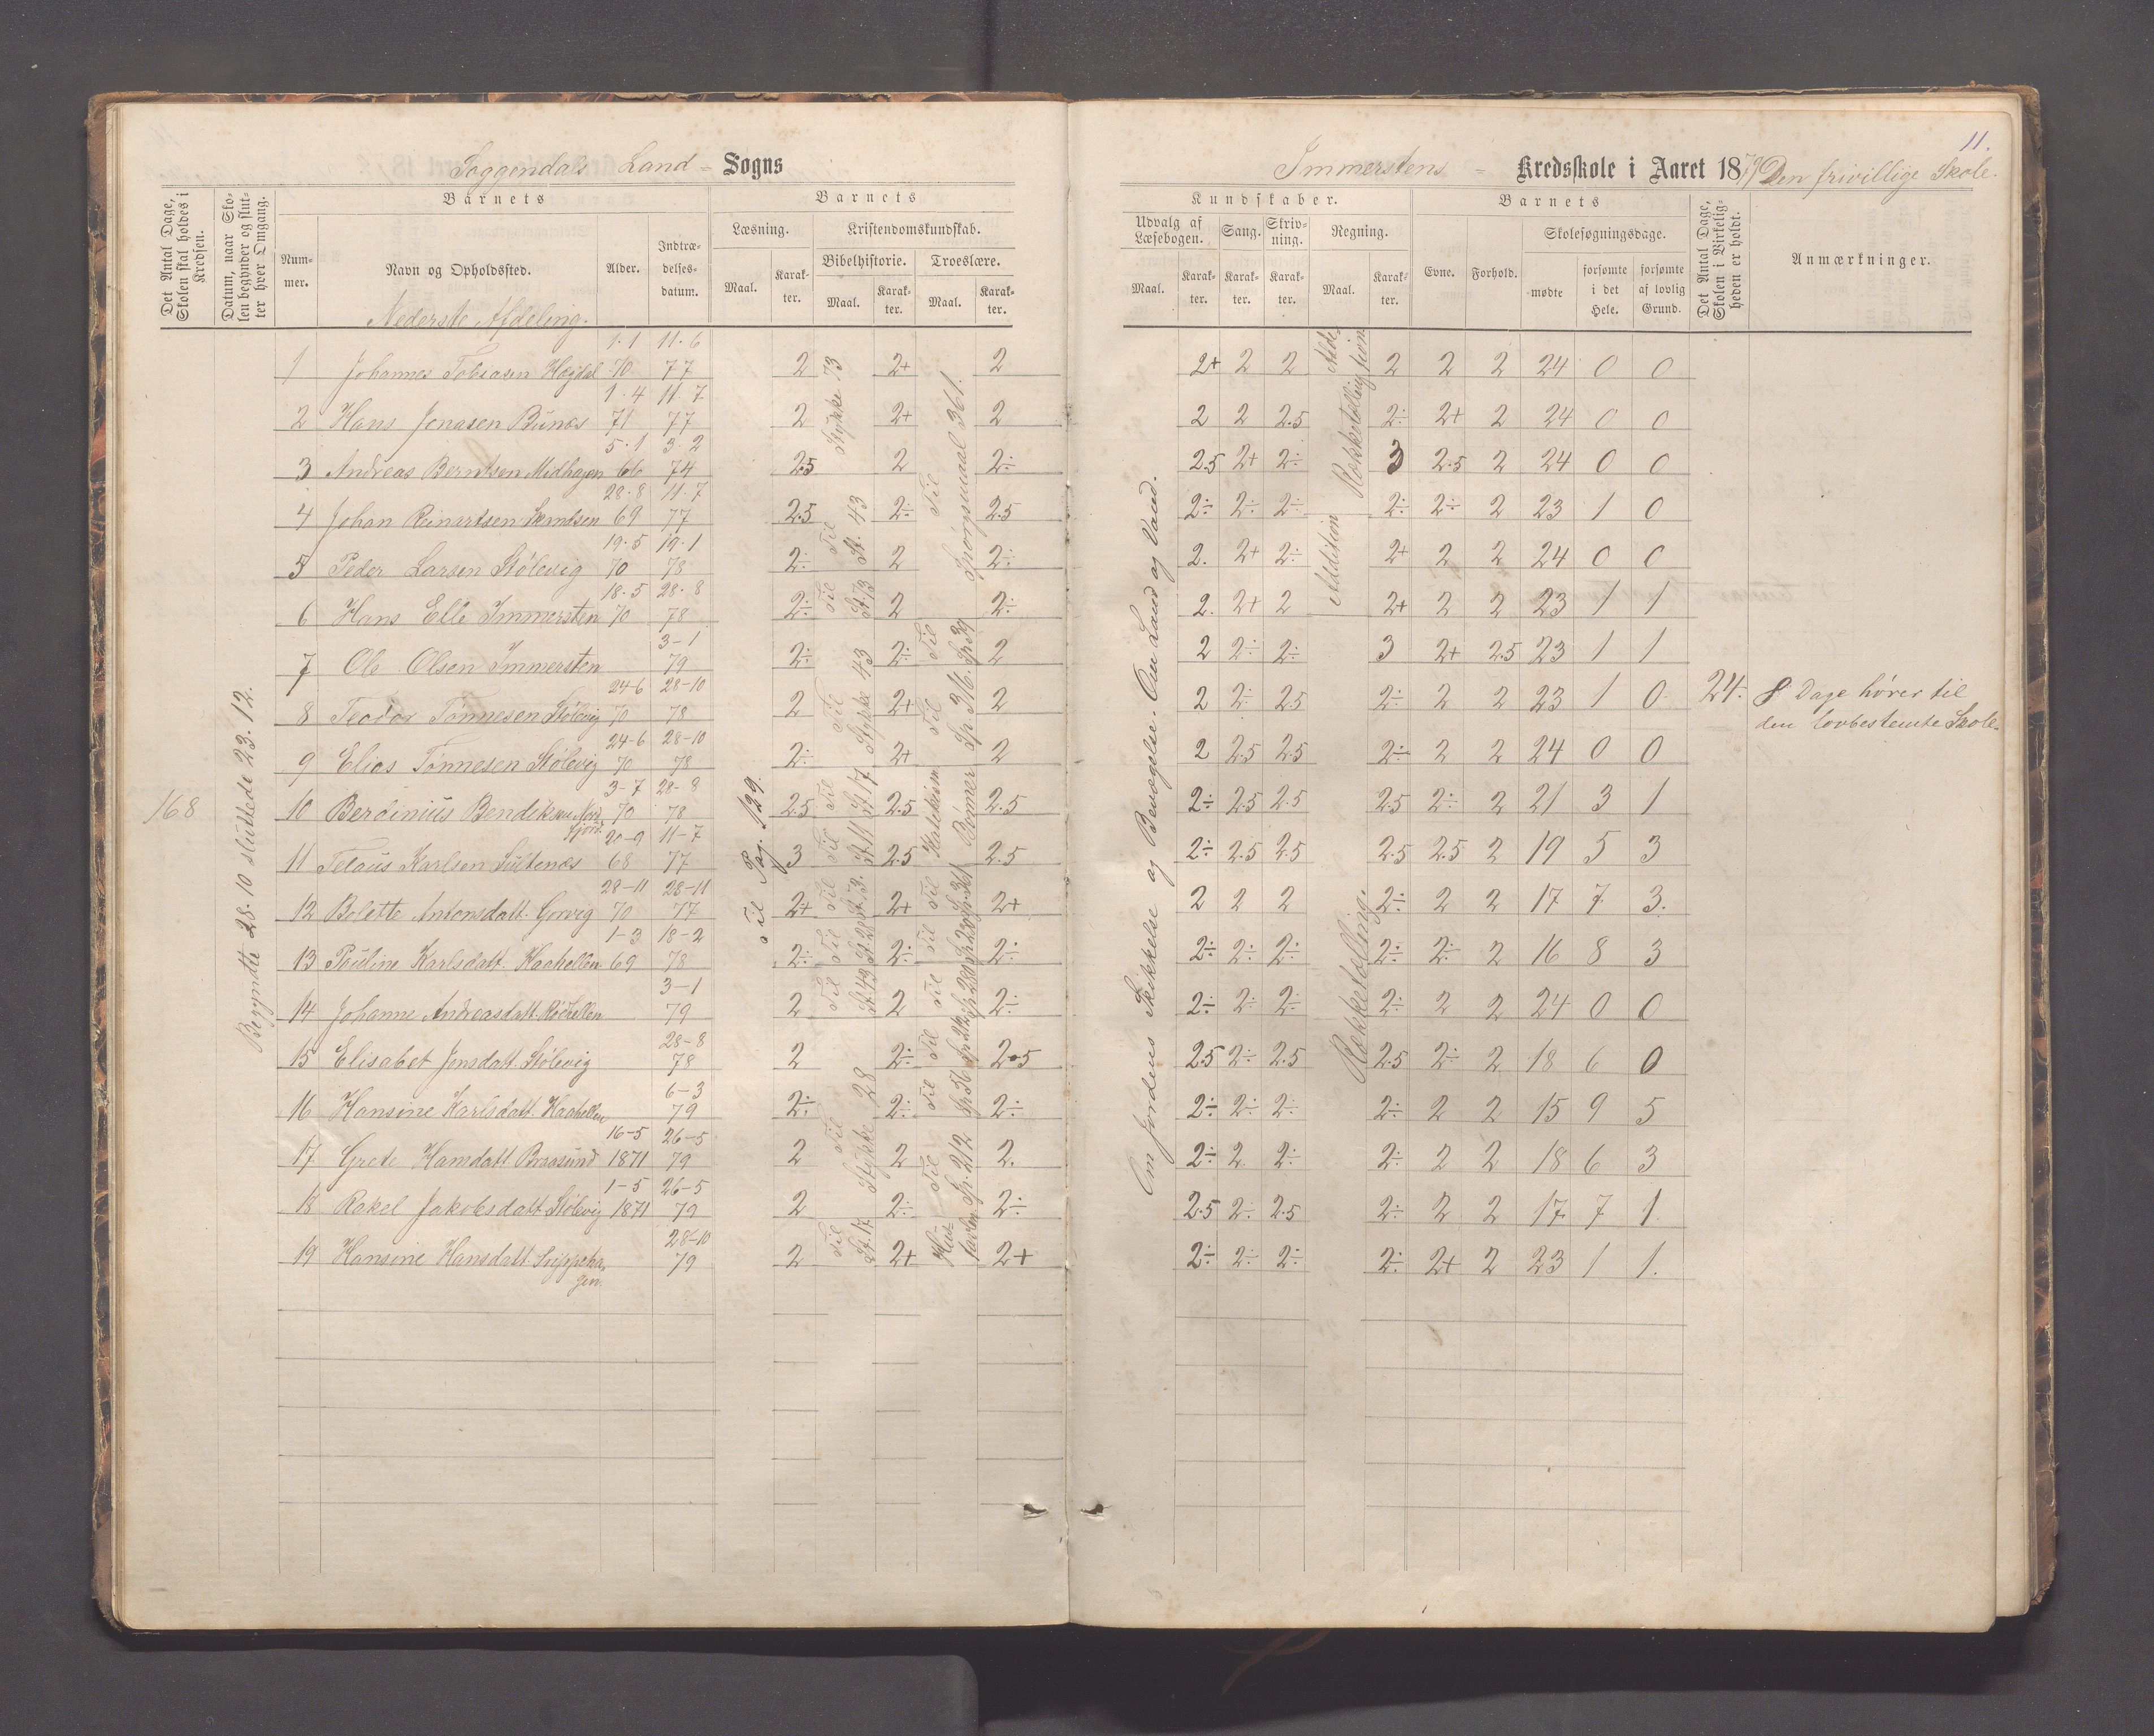 11.
Soggendals Land- Sogns
Immerstens - Kredsskole i Aaret 1879 Den frivillige Skole.
Det Antal Dage, Skolen skal holdes i Kredsen.
Datum, naar Skolen begynder og slutter hver Omgang.
Barnets
Nummer.
Navn og Opholdssted.
Alder.
Indtrædelsesdatum.
Barnets
Læsning.
Maal.
Karakter.
Kristendomskundskab.
Bibelhistorie.
Maal.
Karakter.
Troeslære.
Maal.
Karakter.
Kundskaber.
Udvalg af Læsebogen.
Maal.
Karakter.
Sang.
Karakter.
Skrivning.
Karakter.
Regning.
Maal.
Karakter.
Barnets
Evne.
Forhold.
Skolesøgningsdage.
mødte
forsømte i det Hele.
forsømte af lovlig Grund.
Det Antal Dage, Skolen i Virkeligheden er holdt.
Anmærkninger.
Nederste Afdeling.
168
Begyndte 28.10 sluttede 23.12.
Til Pag. 129.
Om Jordens Skikkelse og Bevægelse. Om Land og Vand.
Addition
Rækketælling.
1 Johannes Tobiasen 1.1 70 11.6 77 2 2+ 2 2+ 2 2 2 2 2 24 0 0
2 Hans Jonasen Bunes 1.4 71 11.7 77 2 2+ 2 2 2 2.5 2÷ 2+ 2 24 0 0
3 Andreas Berntsen Midhagen 5.1 66 3.2 74 2.5 2 2÷ 2.5 2+ 2÷ 3 2.5 2 24 0 0
4 Johan Reinartsen 28.8 69 11.7 77 2.5 2÷ 2.5 2÷ 2÷ 2÷ 2÷ 2÷ 2 23 1 0
5 Peder Larsen Stølevig 19.5 70 19.1 78 2÷ 2 2÷ 2. 2+ 2÷ 2+ 2 2 24 0 0
6 Hans Elle Immersten 18.5 70 28.8 78 2÷ 2 2÷ 2. 2+ 2 2+ 2 2 23 1 1
7 Ole Olsen Immersten 3-1 79 2÷ 2÷ 2 2 2÷ 2÷ 3 2+ 2.5 23 1 1
8 Teodor Tønnesen Stølevig 24-6 70 28-10 78 2 2+ 2 2 2÷ 2.5 2÷ 2 2 23 1 0 24. 8 Dage hører til
den lovbestemte Skole.
9 Elias Tønnesen Stølevig 24-6 70 28-10 78 2÷ 2+ 2 2 2.5 2.5 2÷ 2 2 24 0 0
10 Berdinius Bendiksen 3-7 70 28-8 78 2.5 2.5 2.5 2÷ 2.5 2.5 2.5 2÷ 2 21 3 1
11 Karlsen 20-9 68 11-7 77 3 2.5 2.5 2÷ 2.5 2.5 2.5 2.5 2 19 5 3
12 Bolette Antonsdatt. 28-11 70 28-11 77 2+ 2+ 2+ 2 2 2 2÷ 2 2 17 7 3.
13 Pauline Karlsdatt. Haahellen 1-3 69 18-2 78 2÷ 2÷ 2÷ 2÷ 2÷ 2÷ 2÷ 2÷ 2 16 8 3
14 Johanne Andreasdatt. 3-1 79 2 2 2÷ 2÷ 2÷ 2÷ 2÷ 2 2 24 0 0
15 Elisabet Jensdatt. Stølevig 28-8 78 2 2÷ 2.5 2.5 2÷ 2.5 2.5 2÷ 2 18 6 0
16 Hansine Karlsdatt. Haahellen 6-3 79 2÷ 2÷ 2÷ 2÷ 2÷ 2÷ 2÷ 2 2 15 9 5
17 Grete Hansdatt. 16-5 1871 26-5 79 2 2 2. 2÷ 2 2÷ 2÷ 2 2 18 6 3
18 Rakel Jakobsdatt. Stølevig 1-5 1871 26-5 79 2 2÷ 2÷ 2.5 2÷ 2.5 2÷ 2 2 17 7 1
19 Hansine Hansdatt. 28-10 79 2 2+ 2+ 2÷ 2÷ 2÷ 2÷ 2+ 2 23 1 1.
Stykke 73
Til St. 43
Til St. 73
Til Stykke 43
Til St. 17
Til Stykke 28
Til St. 17
Til Spørgsmaal 361.
Til Sp. 316.
Til Sp. 212
Hustavlen